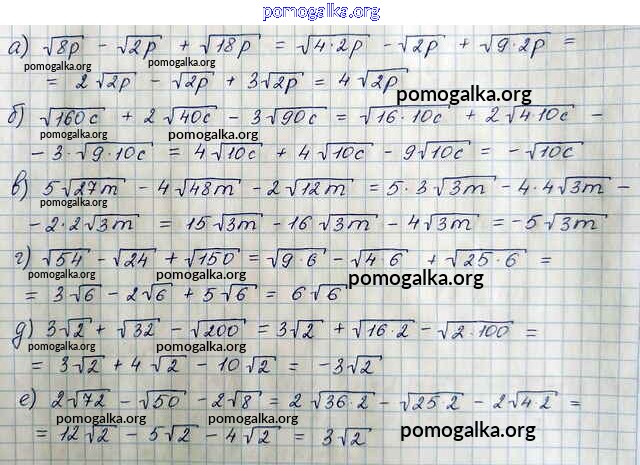 pomogalka.org
а) √8p - √2p + √18p = √4·2p - √2p + √9·2p =
pomogalka.org pomogalka.org
= 2√2p - √2p + 3√2p = 4√2p
pomogalka.org
б) √160c + 2√40c - 3√90c = √16·10c + 2√4·10c -
pomogalka.org pomogalka.org
- 3·√9·10c = 4√10c + 4√10c - 9√10c = -√10c
в) 5√27m - 4√48m - 2√12m = 5·3√3m - 4·4√3m -
pomogalka.org
- 2·2√3m = 15√3m - 16√3m - 4√3m = -5√3m
г) √54 - √24 + √150 = √9·6 - √4·6 + √25·6 =
pomogalka.org pomogalka.org pomogalka.org
= 3√6 - 2√6 + 5√6 = 6√6
д) 3√2 + √32 - √200 = 3√2 + √16·2 - √2·100 =
pomogalka.org pomogalka.org
= 3√2 + 4√2 - 10√2 = -3√2
е) 2√72 - √50 - 2√8 = 2√36·2 - √25·2 - 2√4·2 =
pomogalka.org pomogalka.org
= 12√2 - 5√2 - 4√2 = 3√2
pomogalka.org